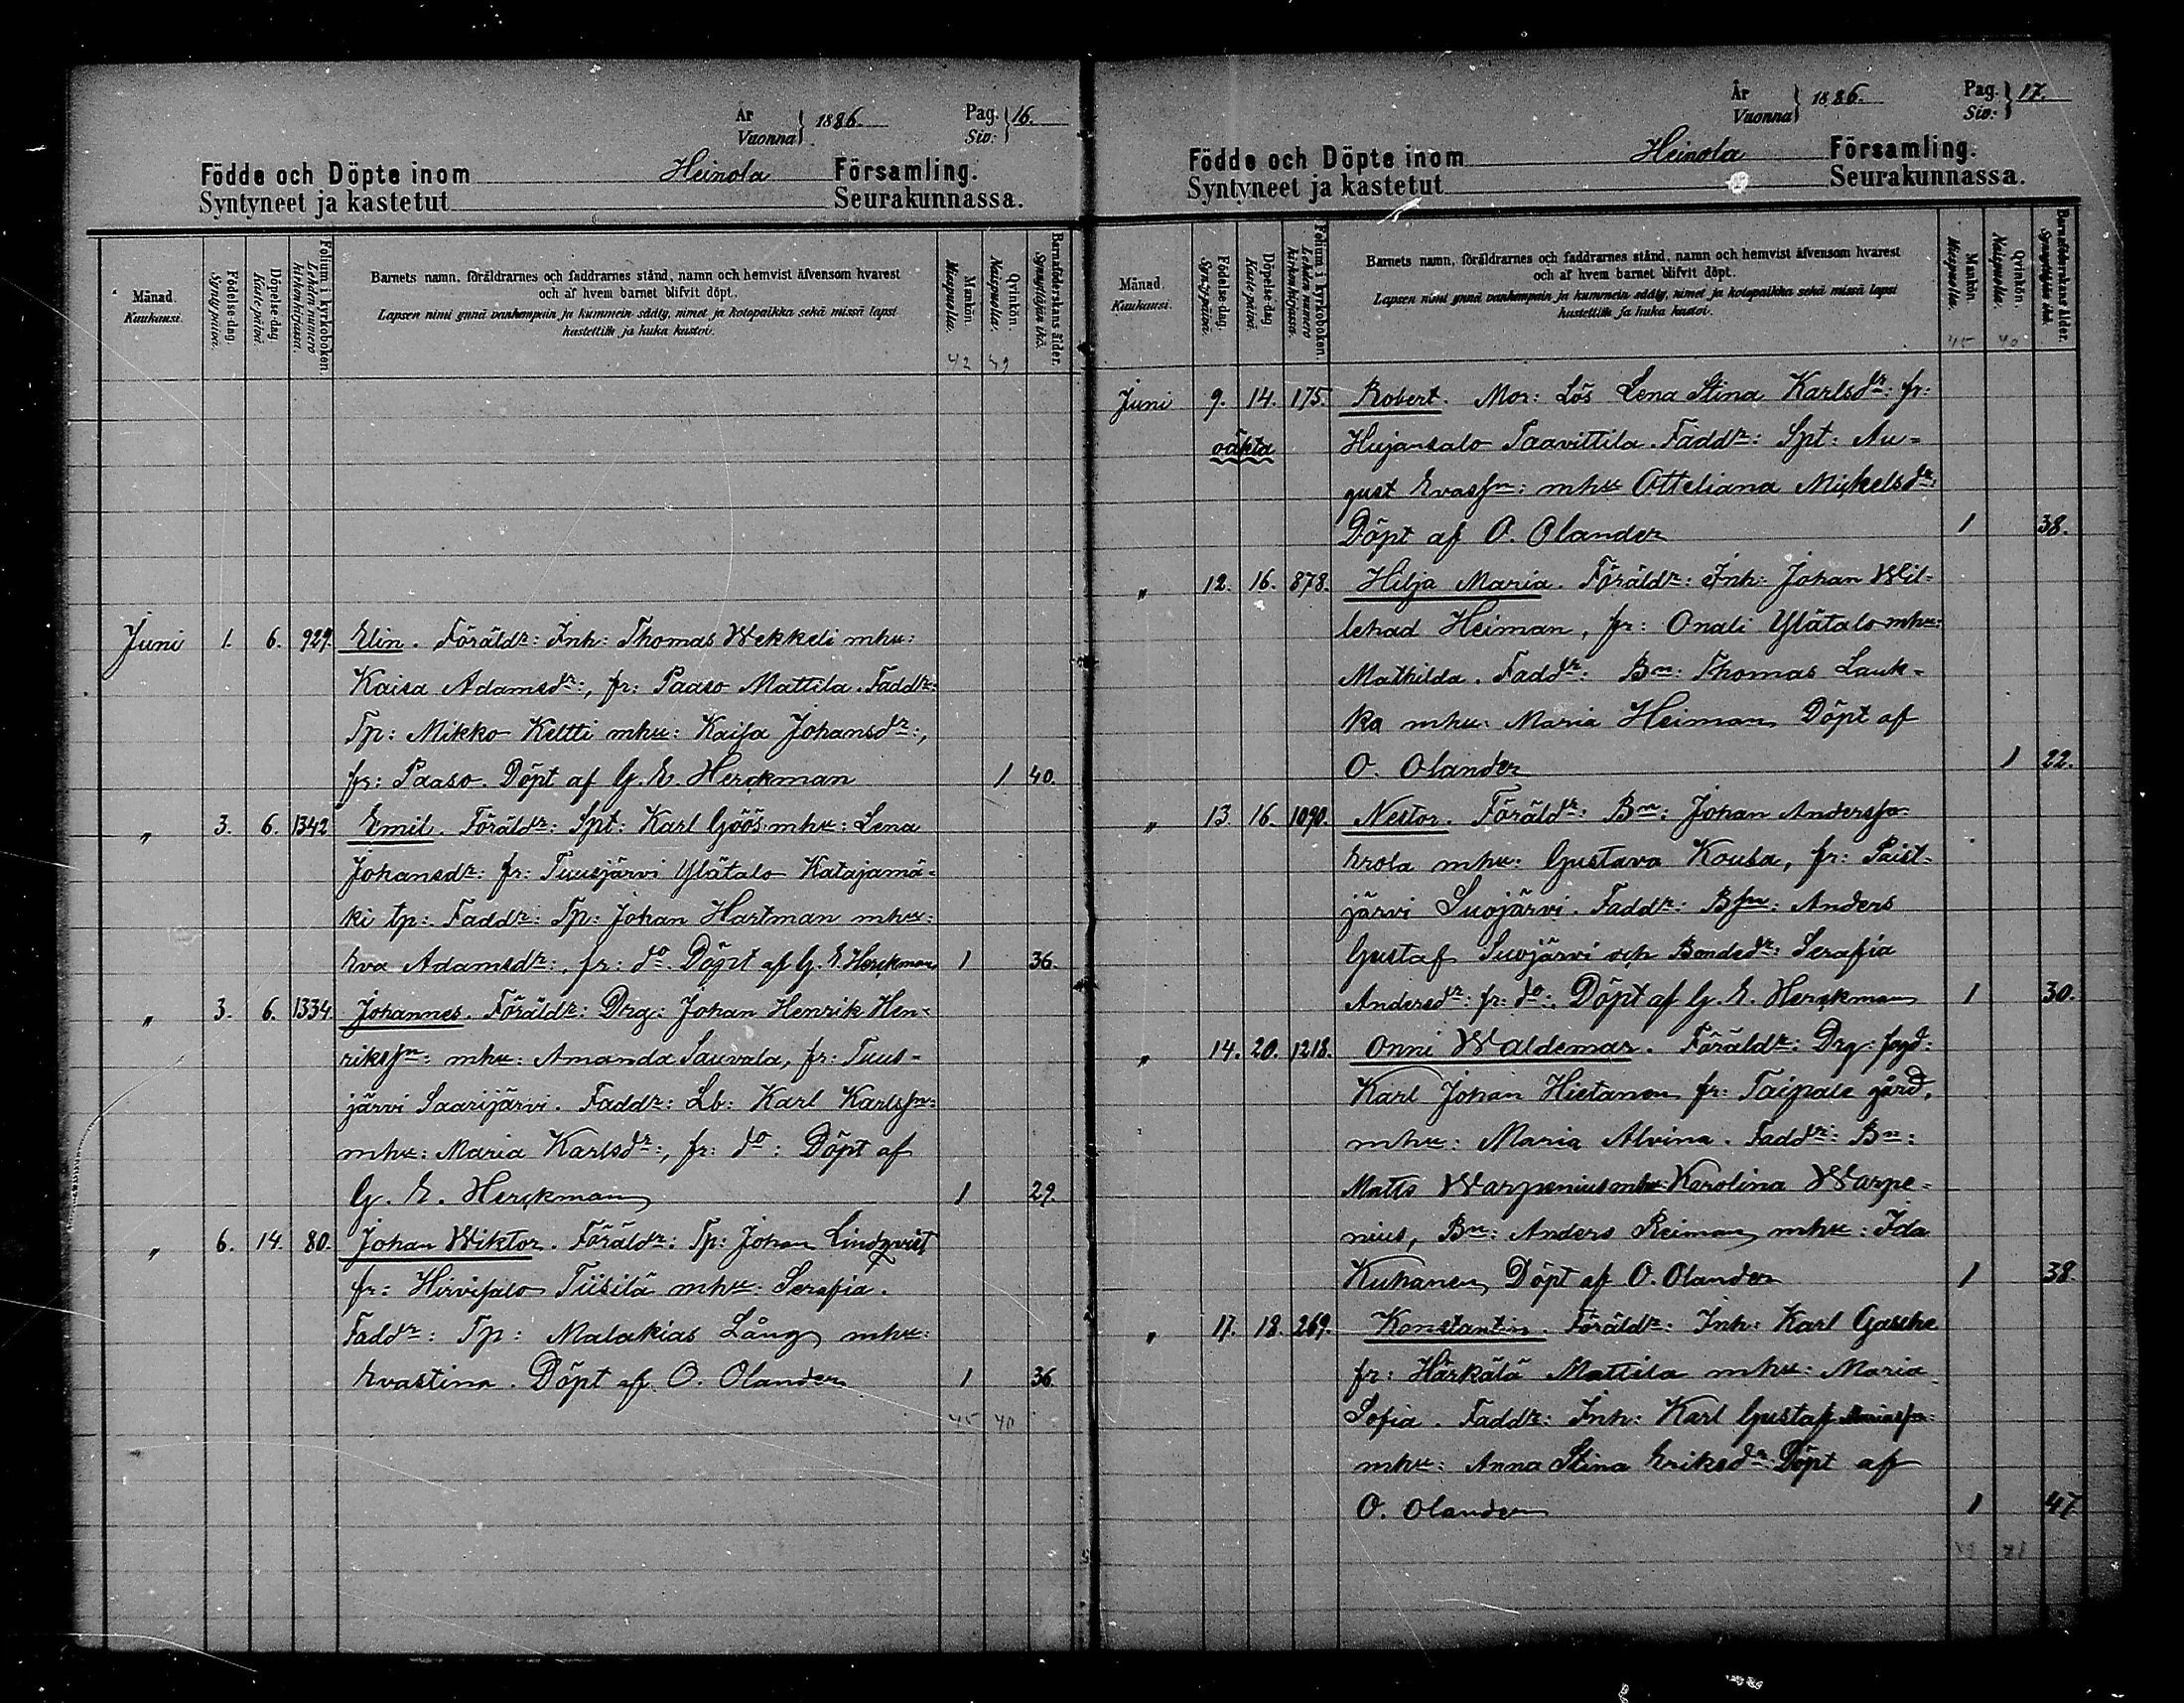 År
Vuonna } 1886.
Pag.
Siv: } 16.
Födde och Döpte inom Heinola Församling.
Syntyneet ja kastetut Seurakunnassa.
Månad.
Kuukausi.
Födelse dag.
Syntypäivä.
Döpelse dag
Kaste päivä.
Folium i kyrkoboken
Lehden numero
kirkonkirjassa.
Barnets namn, föräldrarnes och faddrarnes stånd, namn och hemvist äfvensom hvarest
och af hvem barnet blifvit döpt.
Lapsen nimi ynnä vanhempain ja kummein sääty, nimet ja kotopaikka sekä missä lapsi
kastettiin ja kuka kastoi.
Mankön.
Miespuolia.
Qvinkön.
Naispuolia.
Barnaföderskans ålder.
Synnyttäjän ikä.
42 39
Juni 1. 6. 929. Elin. Föräldr: Inh: Thomas Wekkeli mhu:
Kaisa Adamsdr:, fr: Paaso Mattila. Faddr:
Tp: Mikko Keltti mhu: Kaisa Johansdr:,
fr: Paaso. Döpt af G. E. Herckman 1 40.
" 3. 6. 1342 Emil. Föräldr: Spt: Karl Göös mhu: Lena
Johansdr: fr: Tuusjärvi Ylätalo Katajamä-
ki tp: Faddr: Tp: Johan Hartman mhu:
Eva Adamsdr:, fr: do. Döpt af G. E. Herckman 1 36.
" 3. 6. 1334. Johannes. Föräldr: Drg: Johan Henrik Hen-
rikssn: mhu: Amanda Sauvala, fr: Tuus-
järvi Saarijärvi. Faddr: Lb: Karl Karlssn:
mhu: Maria Karlsdr:, fr: do: Döpt af
G. E. Herckman 1 29.
" 6. 14. 80. Johan Wiktor. Föräldr: Tp: Johan Lindqvist
fr: Hirvisalo Tiisilä mhu: Serafia.
Faddr: Tp: Malakias Lång mhu:
Evastina. Döpt af O. Olander 1 36.
45 40
År
Vuonna } 1886.
Pag.
Siv: } 17.
Födde och Döpte inom Heinola Församling.
Syntyneet ja kastetut Seurakunnassa.
Månad.
Kuukausi.
Födelse-dag.
Syntypäivä.
Döpelse dag
Kaste päivä.
Folium i kyrkoboken.
Lehden numero
kirkonkirjassa.
Barnets namn, föräldrarnes och faddrarnes stånd, namn och hemvist äfvensom hvarest
och af hvem barnet blifvit döpt.
Lapsen nimi ynnä vanhempain ja kummein sääty, nimet ja kotopaikka sekä missä lapsi
kastettiin ja kuka kastoi.
Mankön.
Miespuolia.
Qvinkön.
Naispuolia.
Barnaföderskans ålder.
Synnyttäjän ikä.
45 40
Juni 9. 14. 175. Robert. Mor: Lös Lena Stina Karlsdr: fr:
oäkta Hujansalo Taavittila. Faddr: Spt: Au-
gust Evassn: mhu Otteliana Mickelsdr:
Döpt af O. Olander 1 38.
" 12. 16. 878. Hilja Maria. Föräldr: Inh: Johan Wil-
lehad Heiman, fr: Onali Ylätalo mhu:
Mathilda. Faddr: Bn: Thomas Lauk-
ka mhu: Maria Heiman Döpt af
O. Olander 1 22.
" 13. 16. 1090. Nestor. Föräldr: Bn: Johan Anderssn:
Erola mhu: Gustava Kouba, fr: Paist-
järvi Suojärvi. Faddr: Bsn: Anders
Gustaf Suojärvi och Bondedr: Serafia
Andersdr: fr: do: Döpt af G. E. Herckman 1 30.
" 14. 20. 1218. Onni Waldemar. Föräldr: Drg: fogd:
Karl Johan Hietanen fr: Taipale gård,
mhu: Maria Alvina. Faddr: Bn:
Matts Warpenius mhu: Karolina Warpe-
nius, Bn: Anders Reiman mhu: Ida
Kuhanen, Döpt af O. Olander 1 38.
" 17. 18. 269. Konstantin. Föräldr: Inh: Karl Gasche
fr: Härkälä Mattila mhu: Maria
Sofia. Faddr: Inh: Karl Gustaf Mariassn:
mhu: Anna Stina Eriksdr: Döpt af
O. Olander 1 47